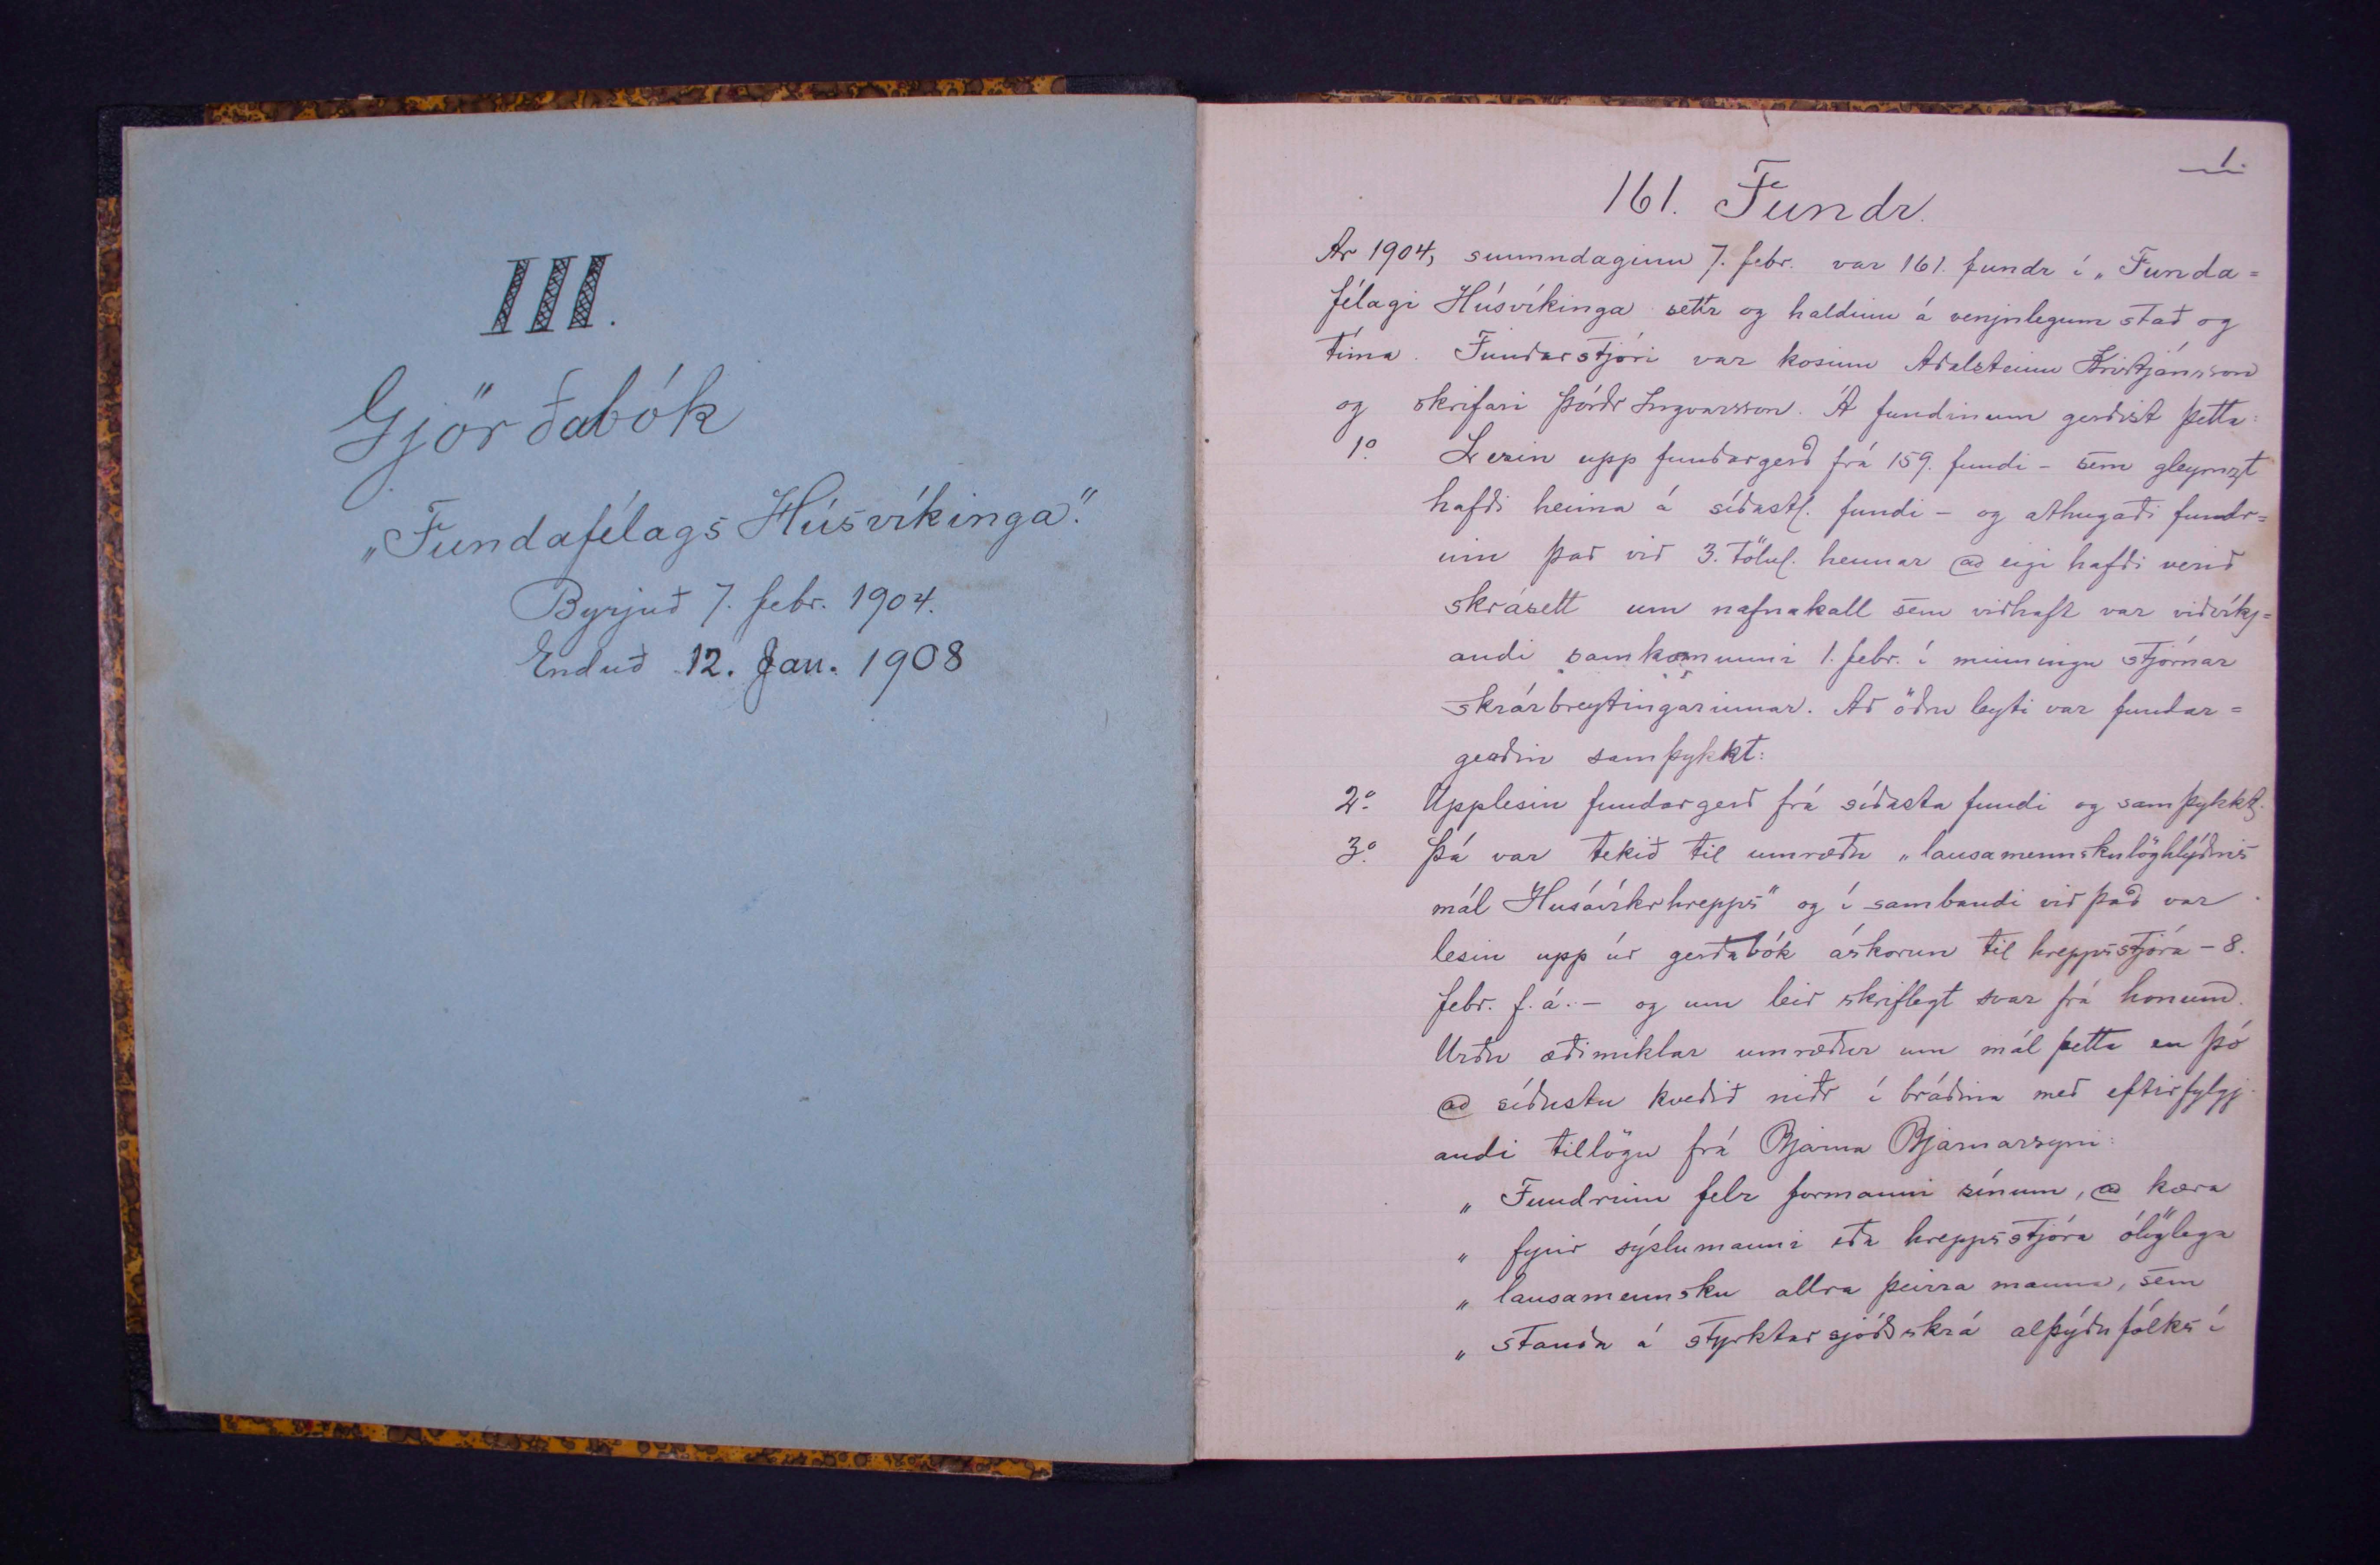 III.
Gjörðabók
„Fundafélags Húsvíkinga".
Byrjuð 7. febr. 1904.
Enduð 12. Jan. 1908
1.
161. Fundr.
Ár 1904, sunnudaginn 7. febr. var 161. fundr í „Funda=
félagi Húsvíkinga settr og haldinn á venjulegum stað og
tíma. Fundarstjóri var kosinn Aðalsteinn Kristjánsson
og skrifari Þórðr Ingvarsson. Á fundinum gerðist þetta:
1º. Lesin upp fundargerð frá 159. fundi – sem gleymzt
hafði heima á síðastl. fundi – og athugaði fundr=
inn það við 3. tölul. hennar @ eigi hafði verið
skrásett um nafnakall sem viðhaft var viðvíkj=
andi samkomunni 1. febr. í minningu stjórnar
skrárbreytingarinnar. Að öðru leyti var fundar=
gerðin samþykkt:
2º. Upplesin fundargerð frá síðasta fundi og samþykkt.
3º. Þá var tekið til umræðu „lausamennskulöghlýðnis
mál Húsavíkrhrepps" og í sambandi við það var
lesin upp úr gerðabók áskorun til hreppsstjóra – 8.
febr. f. á. – og um leið skriflegt svar frá honum.
Urðu æðimiklar umræður um mál þetta en þó
@ síðustu kveðið niðr í bráðina með eftirfylgj
andi tillögu frá Bjarna Bjarnarsyni:
„ Fundrinn felr formanni sínum, @ kæra
„ fyrir sýslumanni eða hreppsstjóra ólöglega
„ lausamennsku allra þeirra manna, sem
„ standa á styrktarsjóðsskrá alþýðufólks í